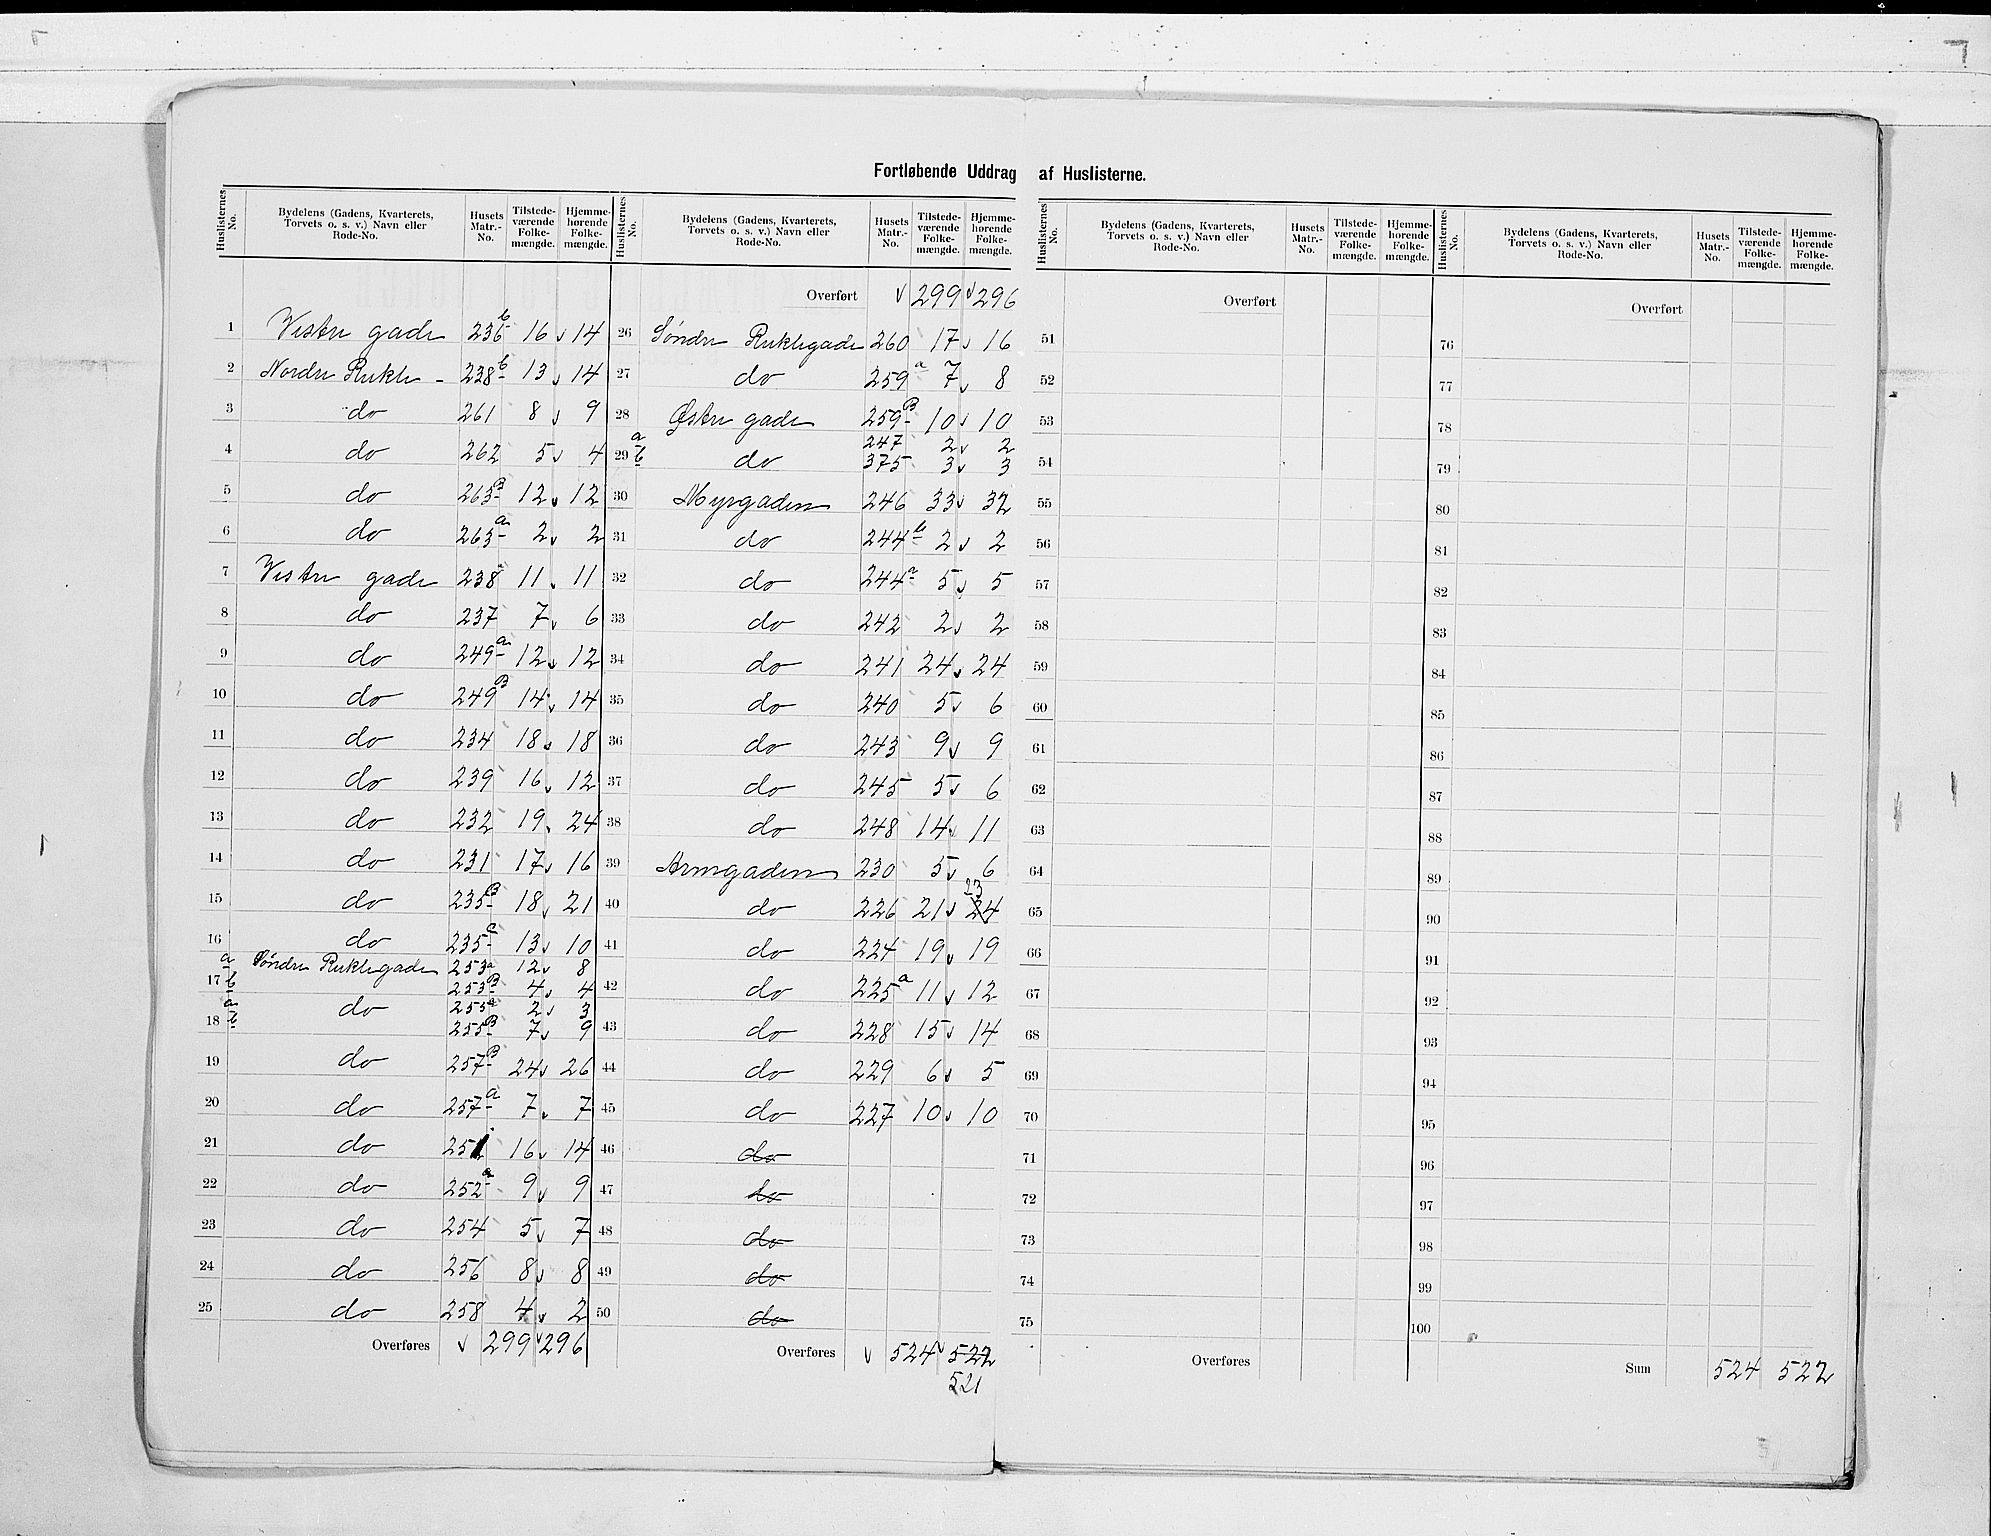 Fortløbende Uddrag af Huslisterne.
Huslisternes No. Bydelens (Gadens, Kvarterets, Torvets o. s. v.) Navn eller Rode-No. Husets Matr.-No. Tilstede-værende Folke-mængde. Hjemme-hørende Folke-mængde.
1 Vestre gade 236b 16 14
2 Nordre Rukle - 238b 13 14
3 do 261 8 9
4 do 262 5 4
5 do 263B 12 12
6 do 263a 2 2
7 Vestre gade 238a 11 11
8 do 237 7 6
9 do 249a 12 12
10 do 249B 14 14
11 do 234 18 18
12 do 239 16 12
13 do 232 19 24
14 do 231 17 16
15 do 235B 18 21
16 do 235a 13 10
17 a Søndre Ruklegade 253a 12 8
b 253B 4 4
18 a do 255a 2 3
b 255B 7 9
19 do 257B 24 26
20 do 257a 7 7
21 do 251 16 14
22 do 252a 9 9
23 do 254 5 7
24 do 256 8 8
25 do 258 4 2
Overføres 299 296
Huslisternes No. Bydelens (Gadens, Kvarterets, Torvets o. s. v.) Navn eller Rode-No. Husets Matr.-No. Tilstede-værende Folke-mængde. Hjemme-hørende Folke-mængde.
Overført 299 296
26 Søndre Ruklegade 260 17 16
27 do 259a 7 8
28 Østre gade 259B 10 10
29 a 247 2 2
b do 375 3 3
30 Myrgaden 246 33 32
31 do 244b 2 2
32 do 244a 5 5
33 do 242 2 2
34 do 241 24 24
35 do 240 5 6
36 do 243 9 9
37 do 245 5 6
38 do 248 14 11
39 Armgaden 230 5 6
40 do 226 21 24 23
41 do 224 19 19
42 do 225a 11 12
43 do 228 15 14
44 do 229 6 5
45 do 227 10 10
46 do
47 do
48 do
49 do
50 do
Overføres 524 522
521
Huslisternes No. Bydelens (Gadens, Kvarterets, Torvets o. s. v.) Navn eller Rode-No. Husets Matr.-No. Tilstede-værende Folke-mængde. Hjemme-hørende Folke-mængde.
Overført
51
52
53
54
55
56
57
58
59
60
61
62
63
64
65
66
67
68
69
70
71
72
73
74
75
Overføres
Huslisternes No. Bydelens (Gadens, Kvarterets, Torvets o. s. v.) Navn eller Rode-No. Husets Matr.-No. Tilstede-værende Folke-mængde. Hjemme-hørende Folke-mængde.
Overført
76
77
78
79
80
81
82
83
84
85
86
87
88
89
90
91
92
93
94
95
96
97
98
99
100
Sum 524 522